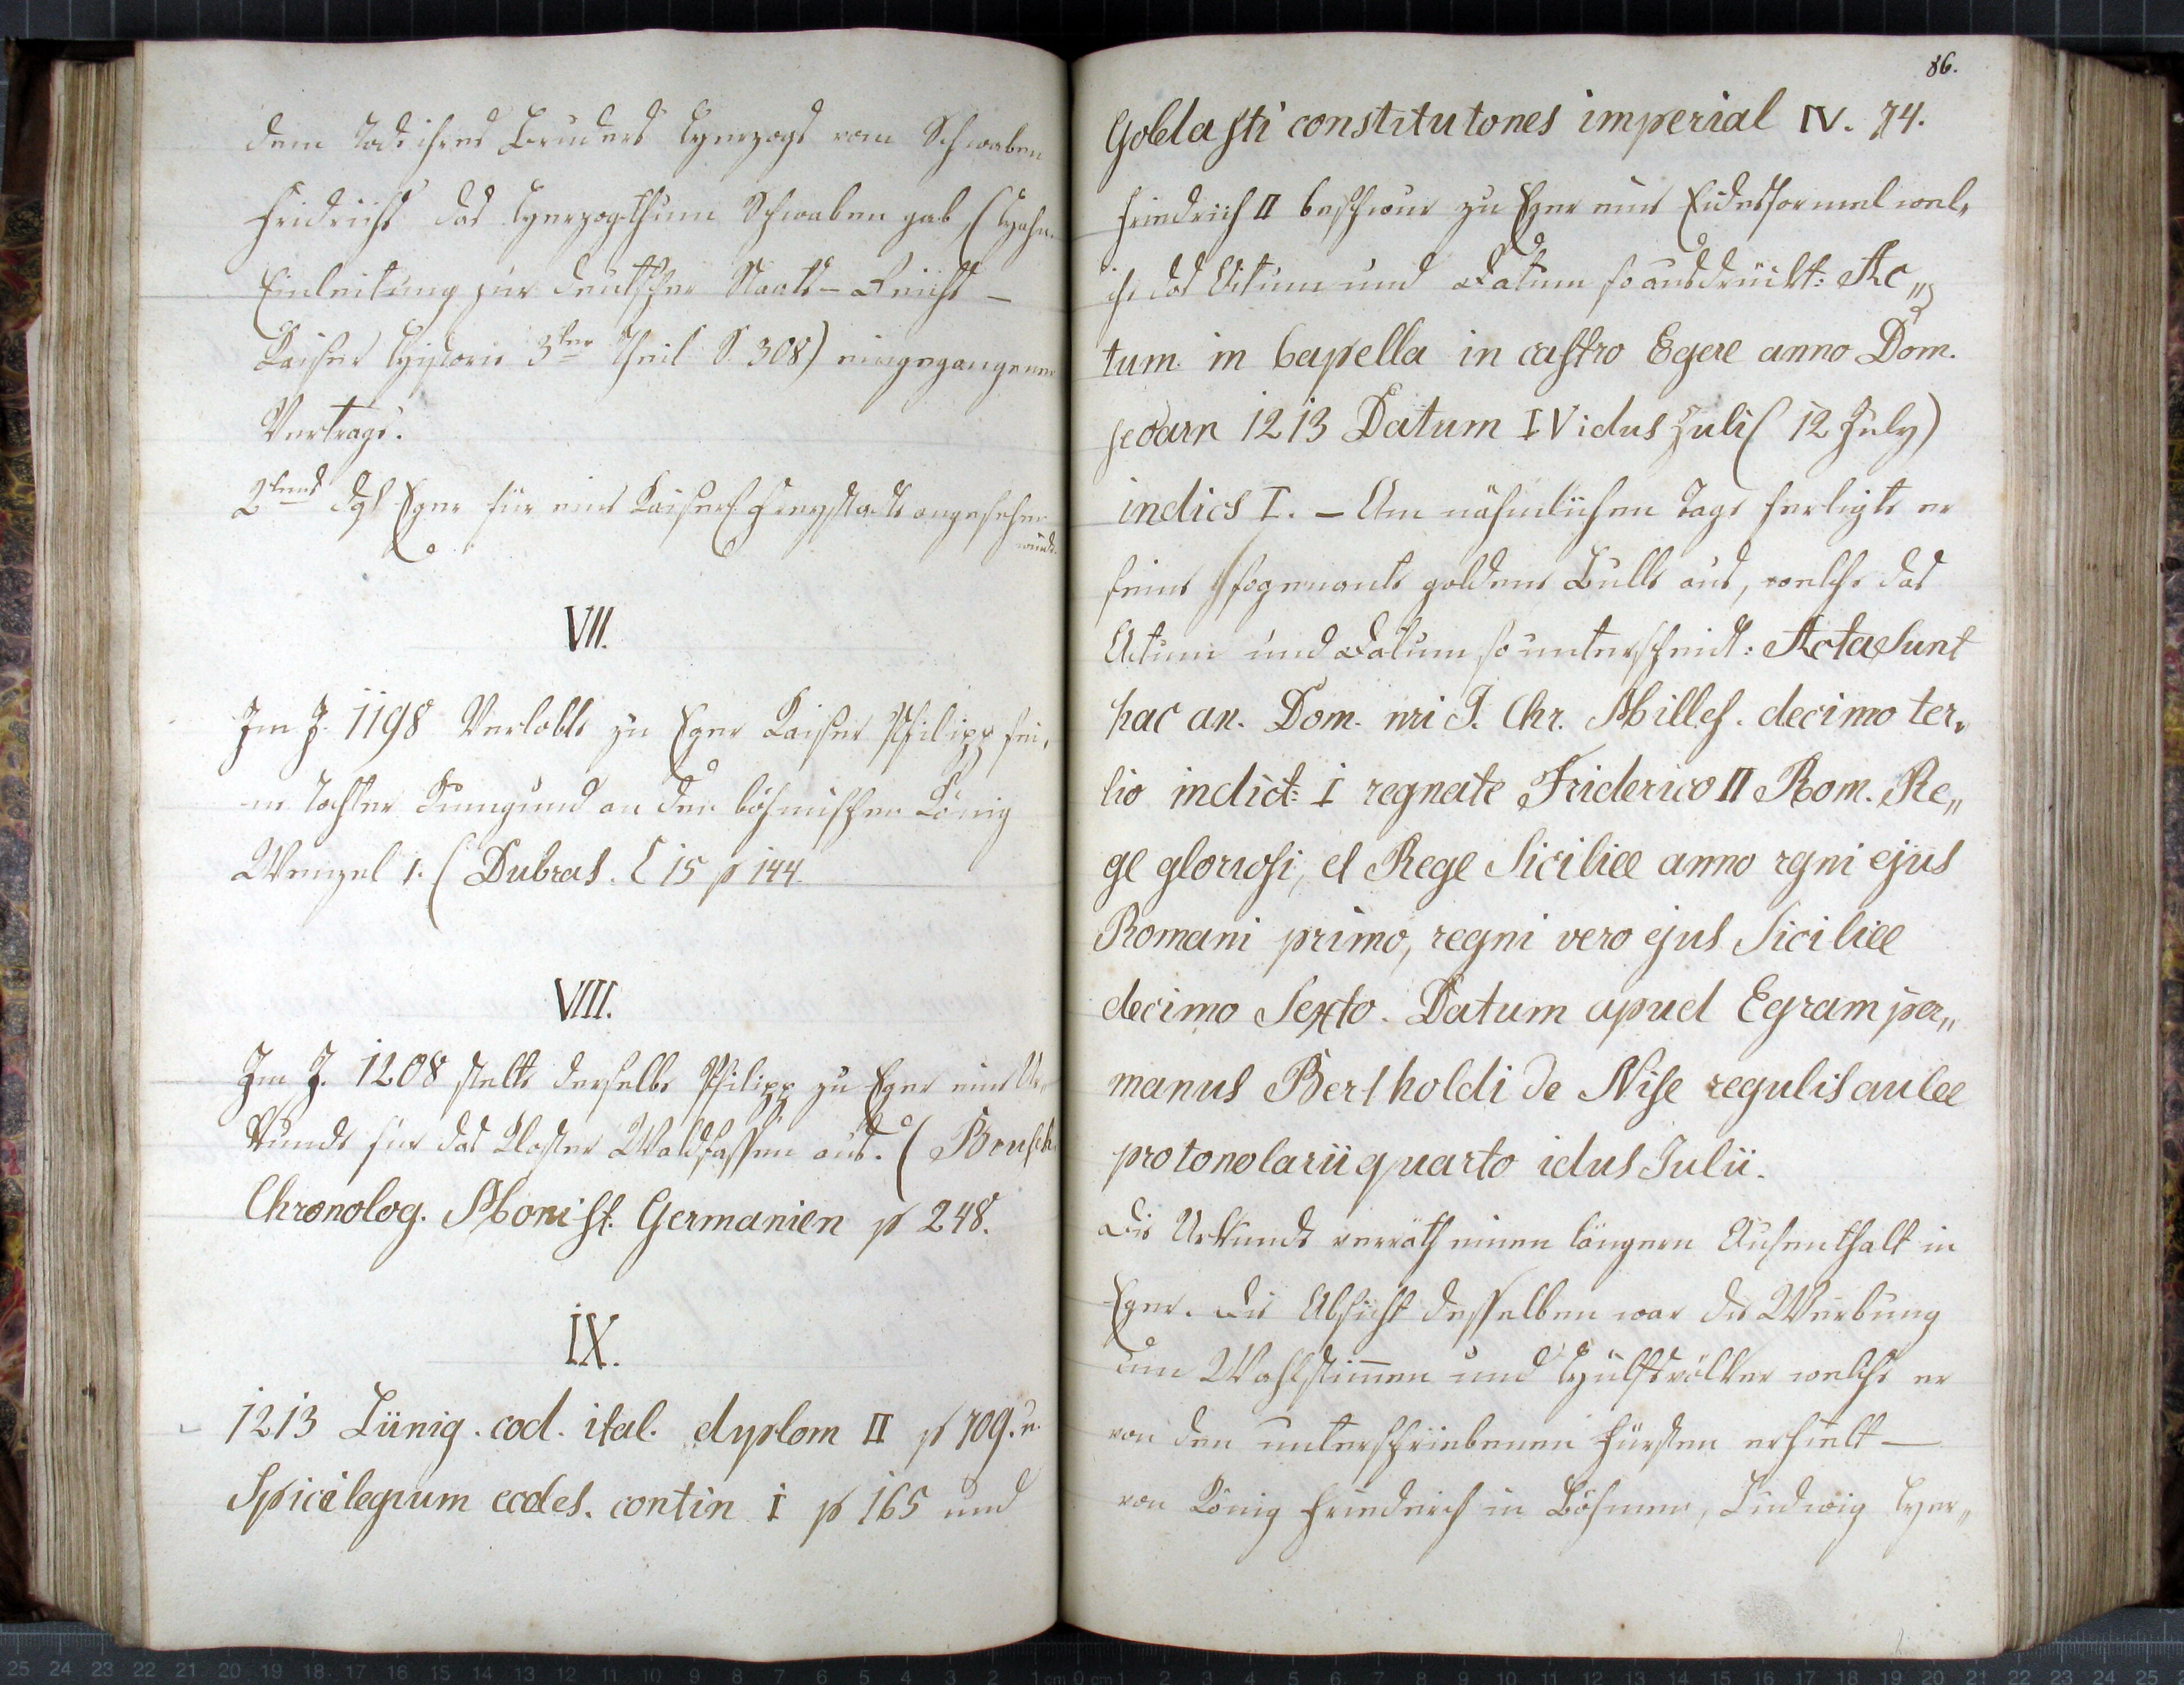 dem Tode ihres Bruders Herzogs vom Schwaben
Fridrichs das Herzogthum Schwaben gab, (Hahn.
Einleitung zur deutschen Staats- Reichs-
Kaiser Historie 3ter Theil S. 308) eingegangenen
Vertrags.
2tens daß Eger für eine Kaiserl. Freystadt angesehen
wurde.
VII.
Im J. 1198 Verlobte zu Eger Kaiser Philipp sei-
ne Tochter Kunigund an den böhmischen König
Wenzel 1. ( Dubras. l 15 p 144.
VIII.
Im J. 1208 stelte derselbe Philipp zu Eger eine Ur-
kunde für das Kloster Waldsassen aus. ( Brusch.
Chronolog. Monist. Germanien p 248.
IX.
1213 Lünig. cod. ital. dyplom II p 709. u.
Spicilegium eccles. contin I p 165 und
86.
Goldasti constitutones imperial IV. 74.
Friedrich II beschwur zu Eger eine Eidesformel wel-
che das Actum und Datum so ausdrückt: Ac„
tum in Capella in castro Egere anno Dom.
1213 Datum IV idus Juli ( 12 July)
indics I. – Am nähmlichen Tage fertigte er
seine sogenante goldene Bulle aus, welche das
Actum und Datum so unterscheidt: Acta Sunt
hac an. Dom. nri J. Chr. Milles. decimo ter„
tio indict: I regnate Friderico II Rom. Re„
ge gloriosi, et Rege Siciliee anno rgni ejus
Romani primo, regni vero ejus Siciliee
decimo Sexto. Datum apud Egram per„
manus Bertholdi de Nise regulis aulee
protonolarii quarto idus Julii.
Die Urkunde verräth einen längern Aufenthalt in
Eger. Die Absicht desselben war die Werbung
um Wahlstim̄en und Hülfsvölker welche er
von den unterschriebenen Fürsten erhielt –
von König Friederich in Böhmen, Ludwig Her„